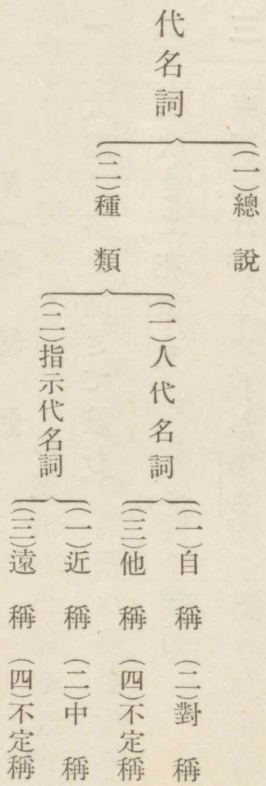 代名詞
(一)總說
(二)種類
(一)人代名詞
(二)指示代名詞
(一)自稱 (二)對稱
(三)他稱 (四)不定稱
(一)近稱 (二)中稱
(三)遠稱 (四)不定稱